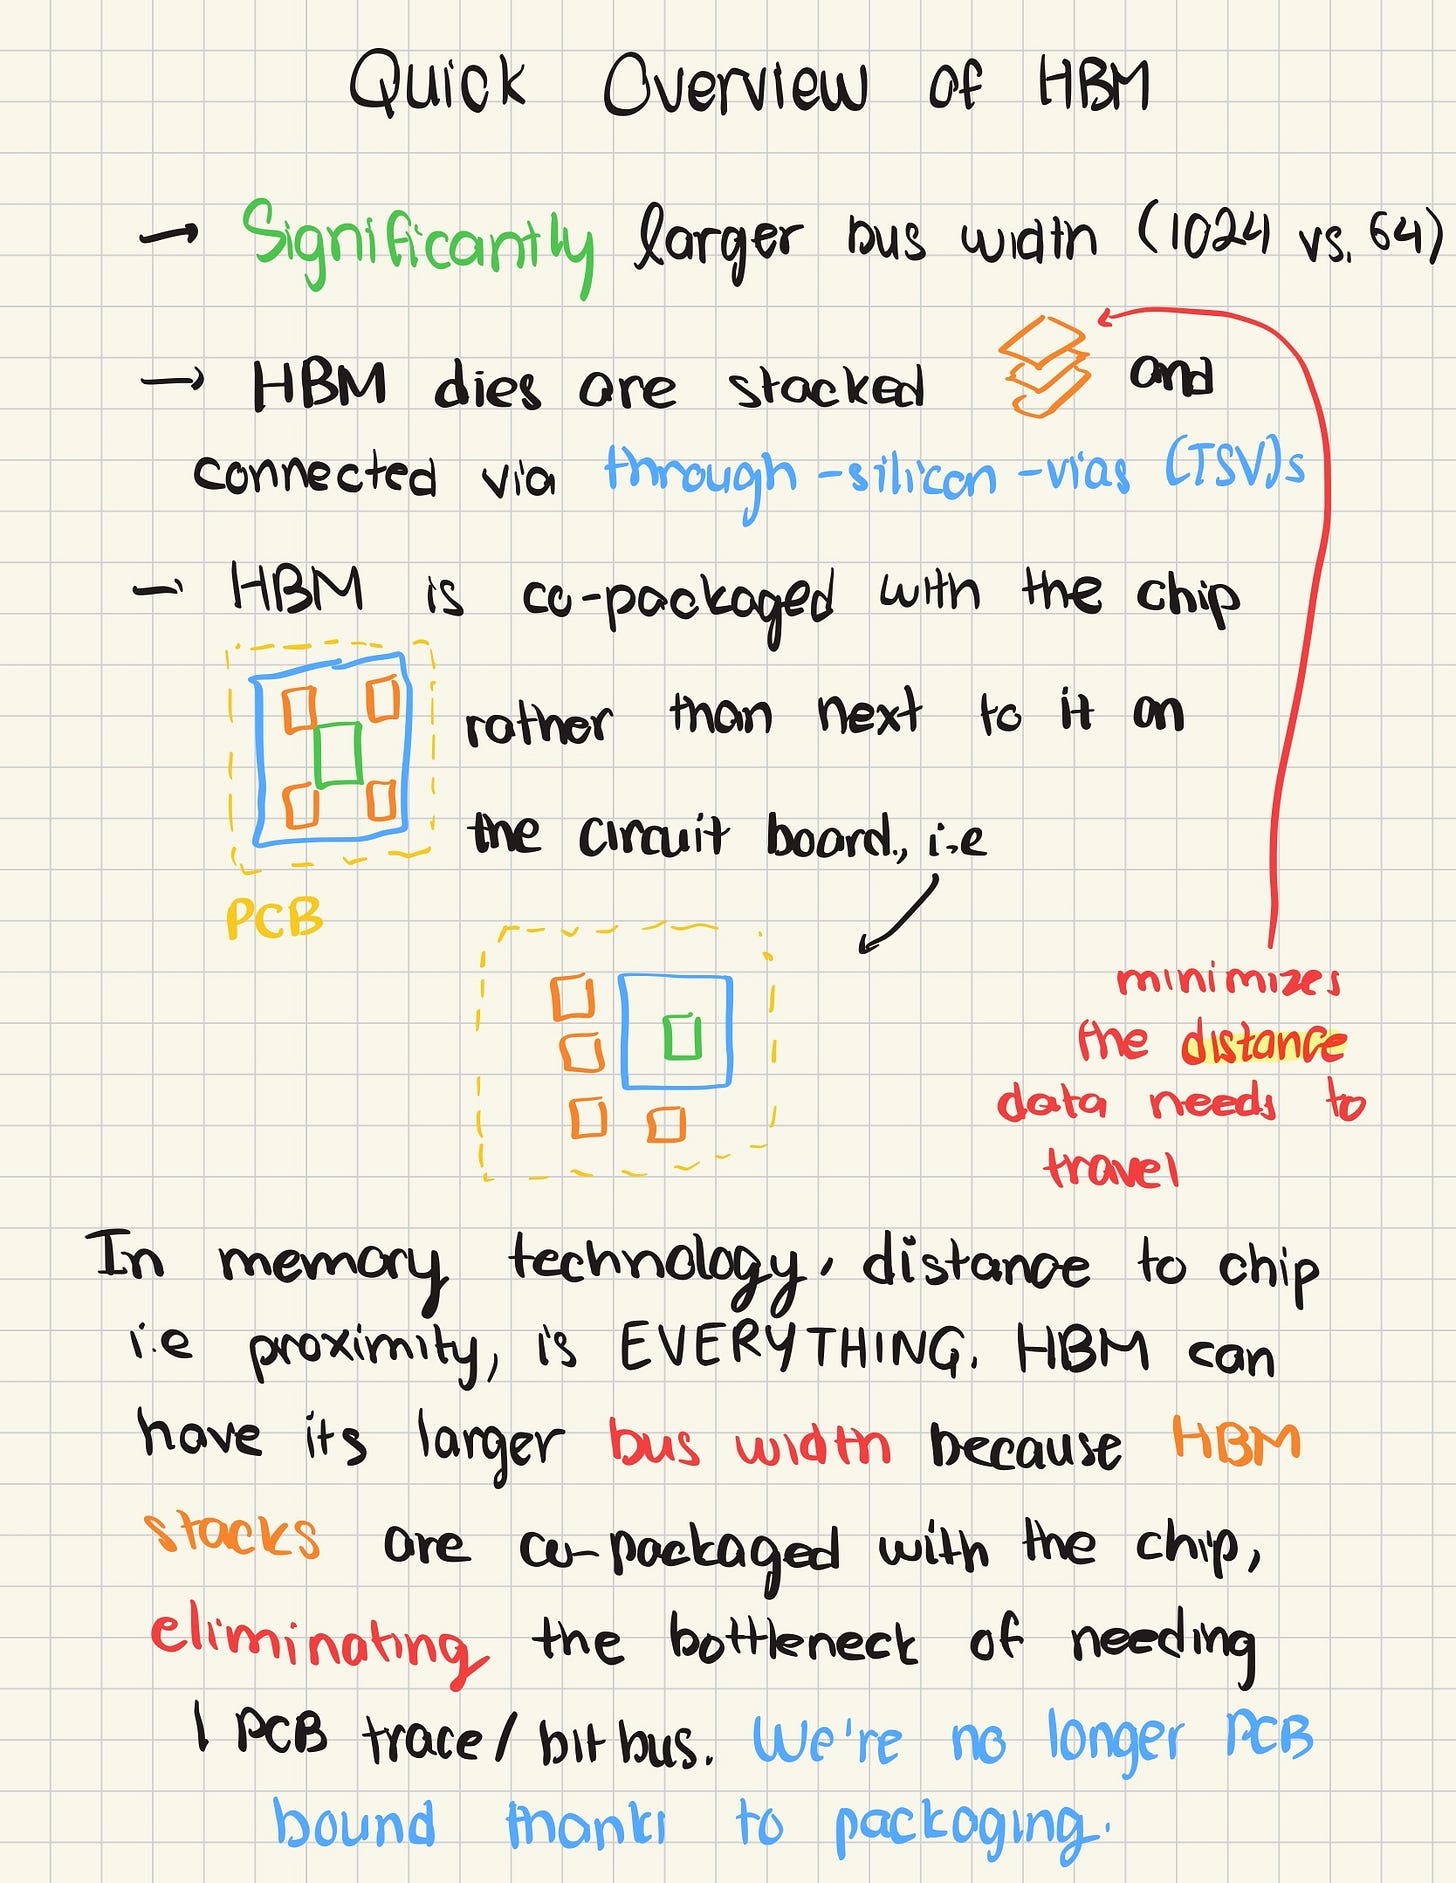 Quick Overview of HBM
→ Significantly larger bus width (1024 vs. 64)
→ HBM dies are stacked and
connected via through-silicon-vias (TSV)s
- HBM is co-packaged with the chip
rather than next to it on
the circuit board., i.e
PCB
minimizes
the distance
data needs to
travel
In memory technology, distance to chip
i.e proximity, is EVERYTHING. HBM can
have its larger bus width because HBM
stacks are co-packaged with the chip,
eliminating the bottleneck of needing
1 PCB trace/bit bus. We're no longer PCB
bound thanks to packaging.